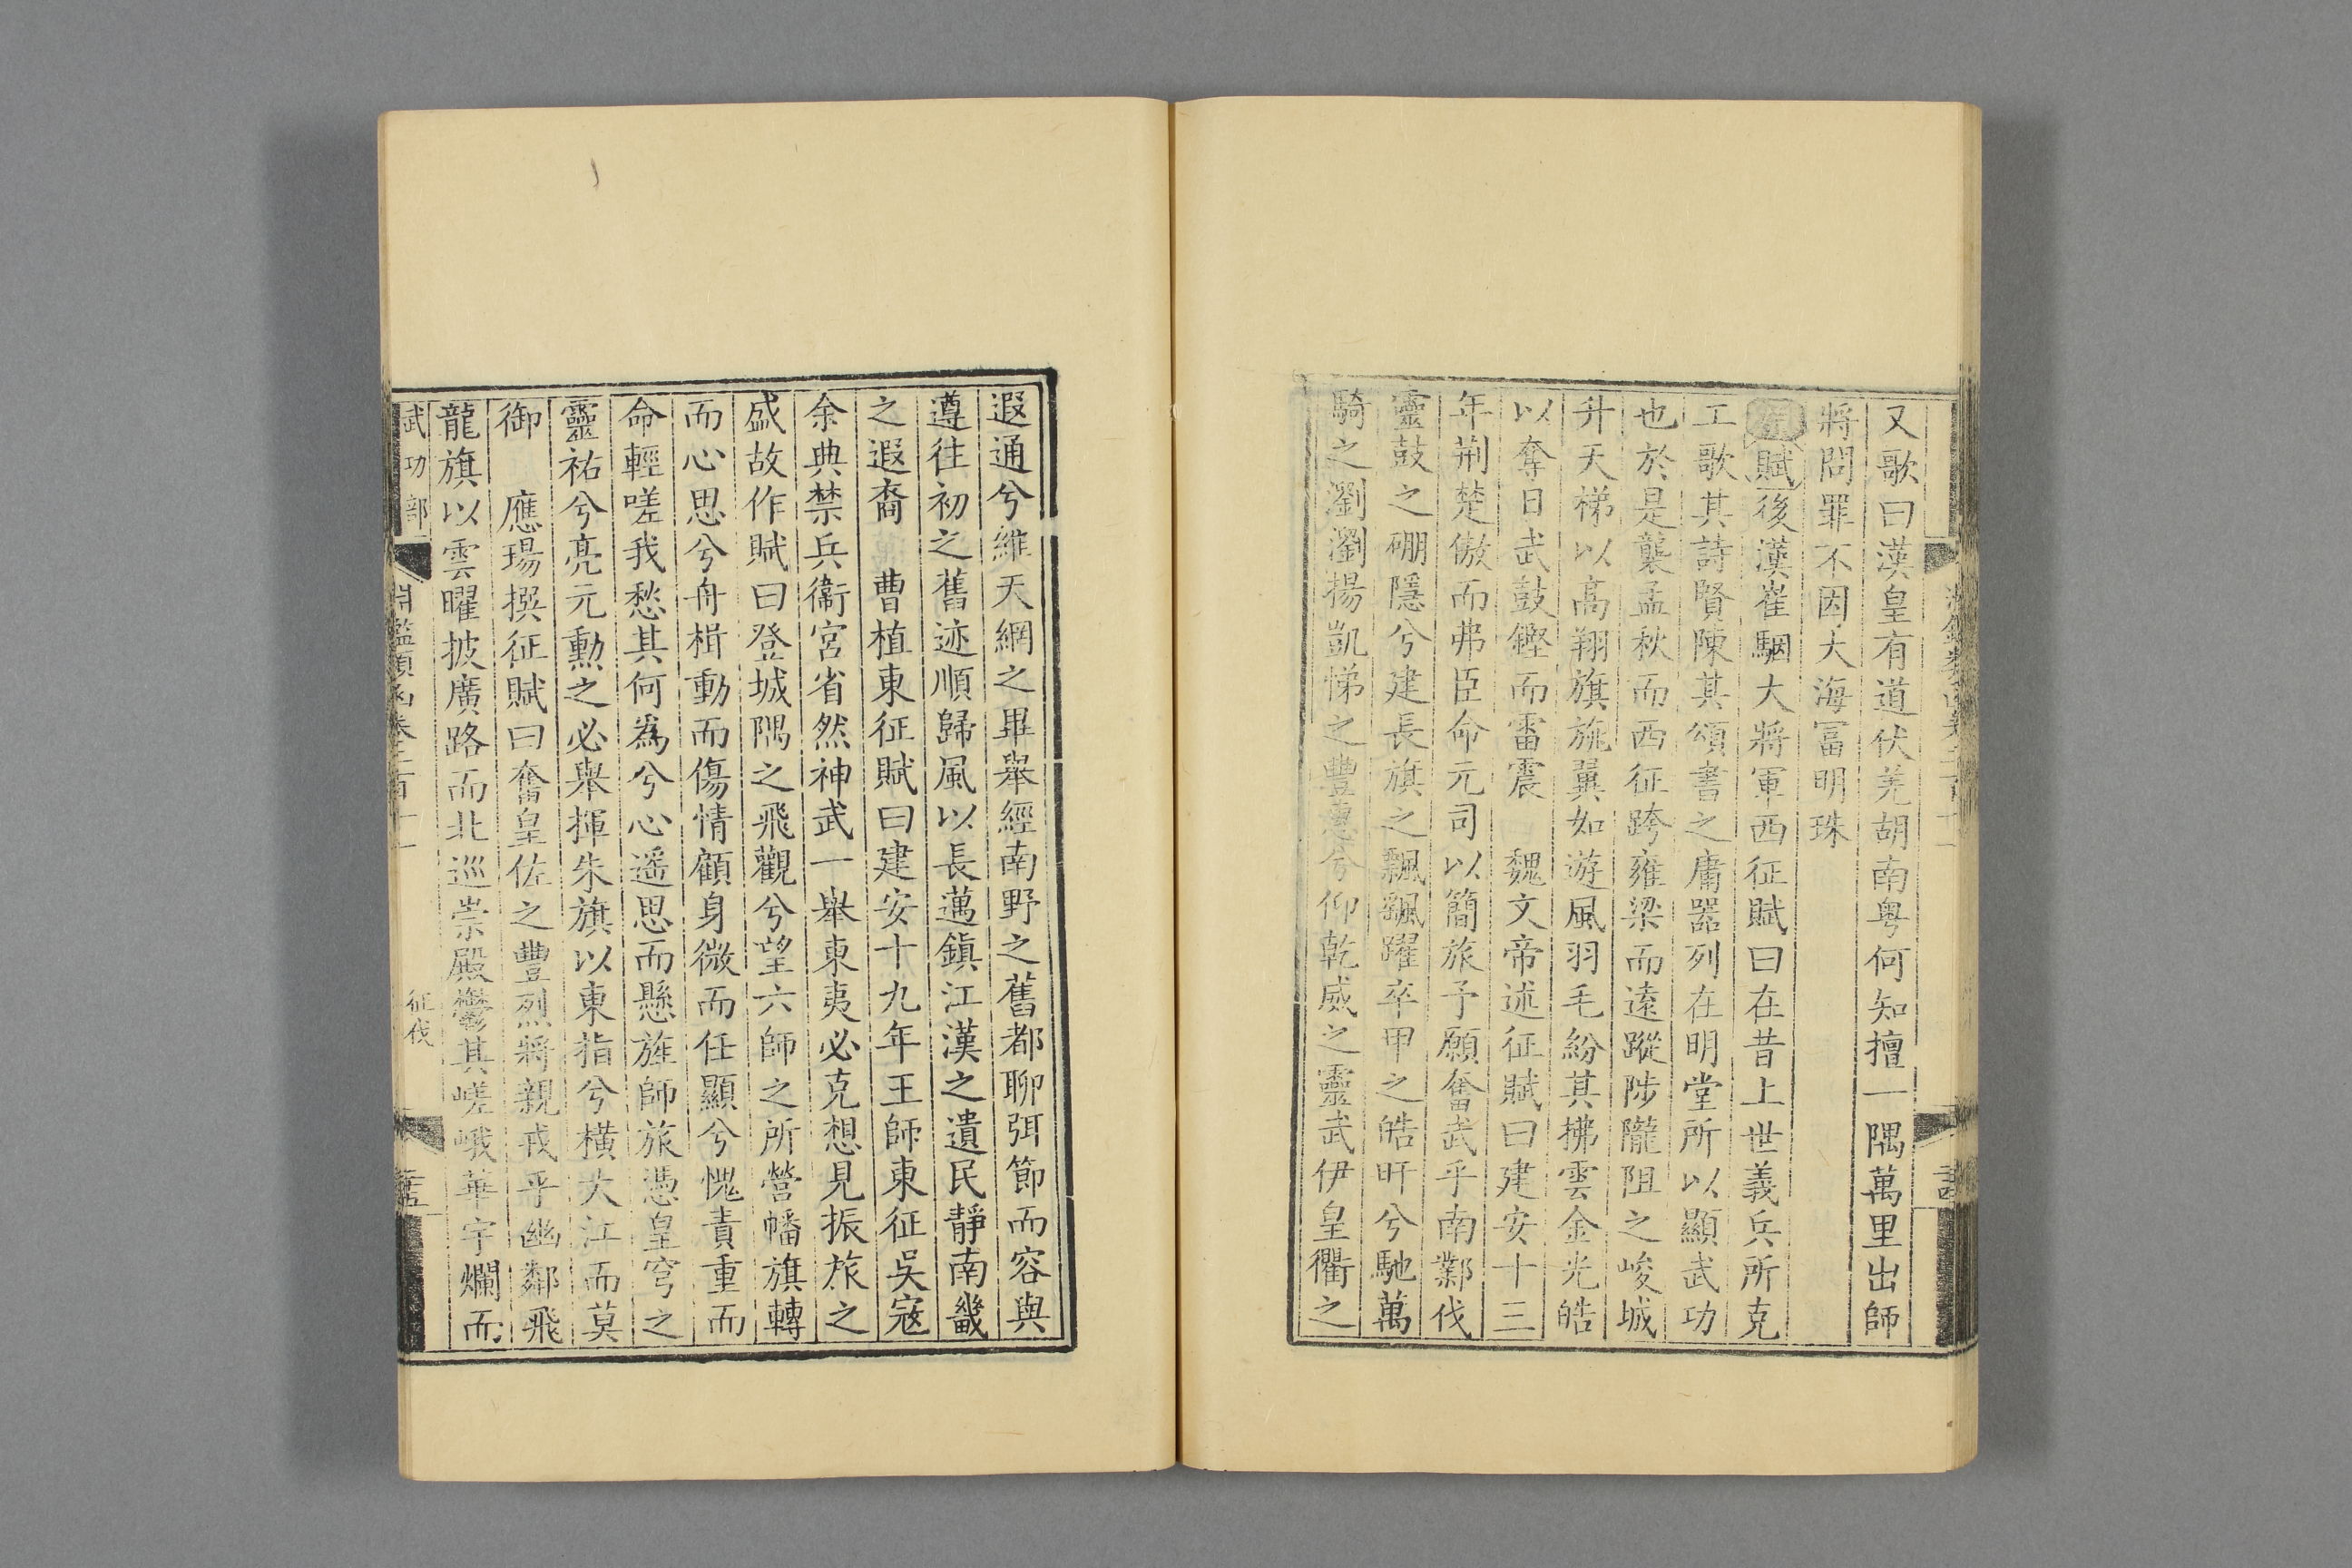 又歌曰漢皇有道伏羌胡南粤何知擅一隅萬里出師
將問罪不因大海冨明珠
賦後漢崔駰大將軍西征賦曰在昔上世義兵所克
工歌其詩賢陳其頌書之庸器列在明堂所以顯武功
也於是襲孟秋而西征跨雍梁而遠蹤陟隴阻之峻城
升天梯以高翔旗旐翼如游風羽毛紛其拂雲金光皓
以奪日武鼓鏗而雷震　魏文帝述征賦曰建安十三
年荆楚傲而弗臣命元司以簡旅予願奮武乎南鄴伐
靈鼓之硼隱兮建長旗之飄飄躍卒甲之皓旰兮馳萬
騎之瀏瀏揚凱悌之豐惠兮仰乾威之靈武伊皇衢之
遐通兮維天網之畢舉經南野之舊都聊弭節而容與
遵往初之舊迹順歸風以長邁鎭江漢之遺民靜南畿
之遐裔　曹植東征賦曰建安十九年王師東征吳寇
余典禁兵衞宮省然神武一舉東夷必克想見振旅之
盛故作賦曰登城隅之飛觀兮望六師之所營幡旗轉
而心思兮舟楫動而傷情顧身微而任顯兮愧責重而
命輕嗟我愁其何爲兮心遥思而懸旌師旅憑皇穹之
靈祐兮亮元勲之必舉揮朱旗以東指兮橫大江而莫
御　應瑒撰征賦曰奮皇佐之豐烈將親戎乎幽鄰飛
龍旗以雲曜披廣路而北巡崇殿鬱其嵯峨華宇爛而
武功部　淵鑑類函卷二百十一　征伐